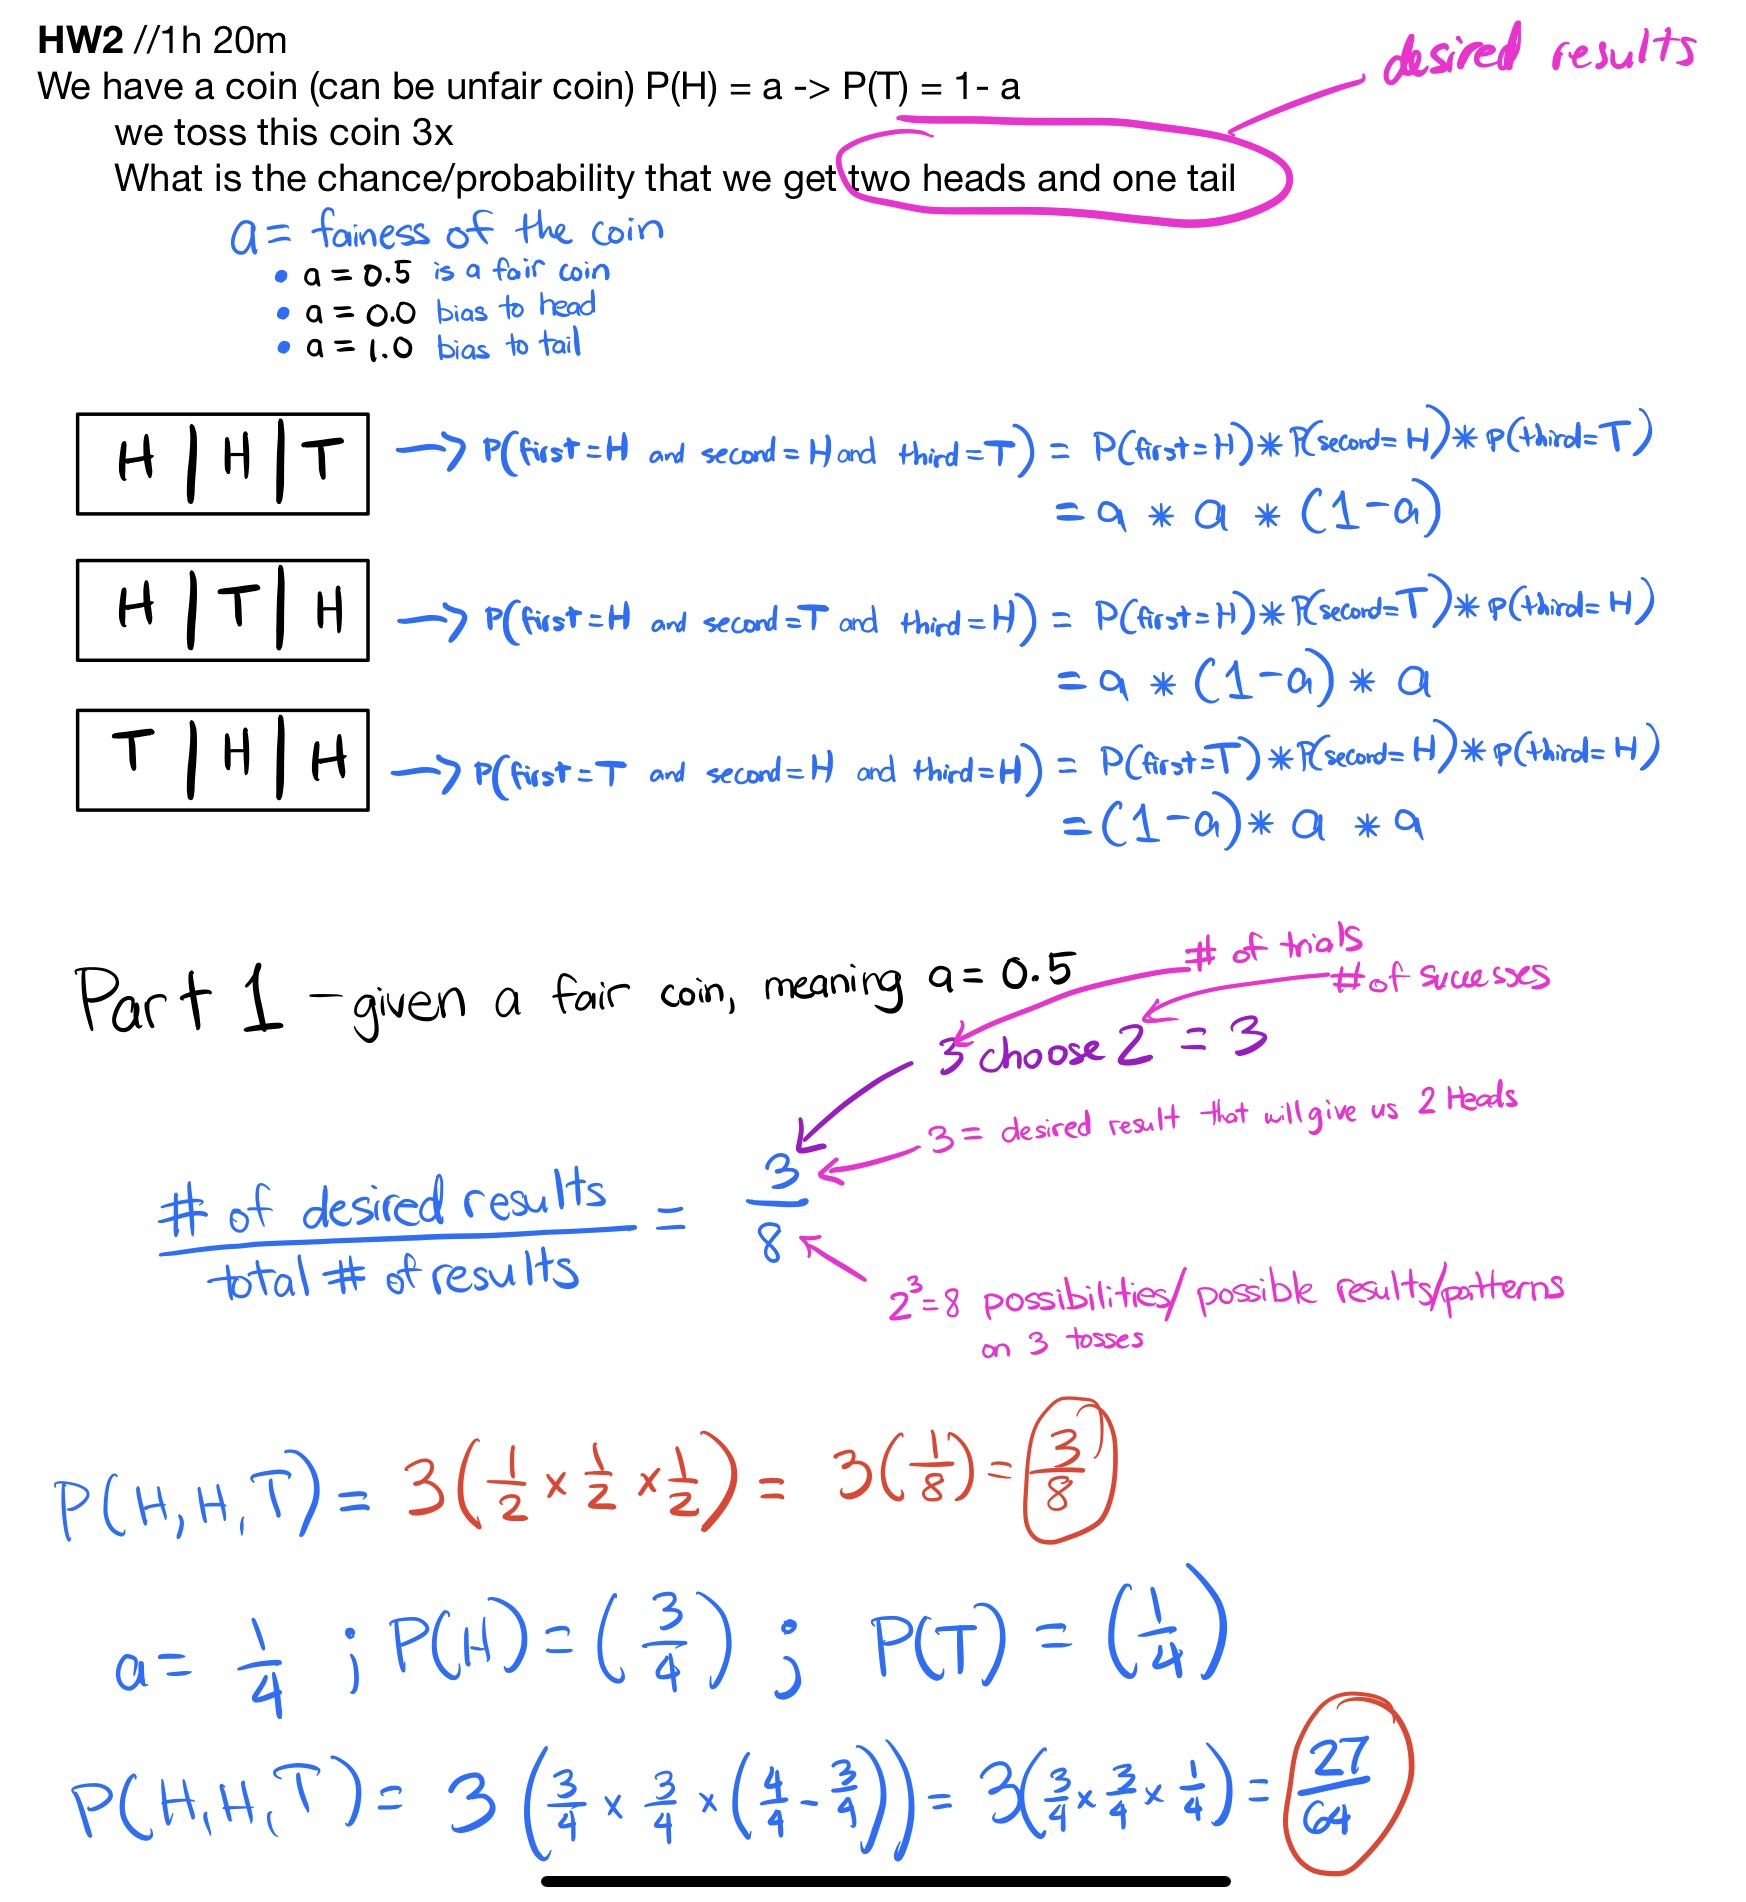 HW2 //1h 20m
desired results
We have a coin (can be unfair coin) P(H) = a -> P(T) = 1- a
we toss this coin 3x
What is the chance/probability that we get two heads and one tail
a = fainess of the coin
• a = 0.5 is a fair coin
• a = 0.0 bias to head
• a = 1.0 bias to tail
H | H | T → P(first = H and second = H and third = T) = P(first = H) * P(second = H) * P(third = T)
= a * a * (1-a)
H | T | H → P(first = H and second = T and third = H) = P(first = H) * P(second = T) * P(third = H)
= a * (1-a) * a
T | H | H → P(first = T and second = H and third = H) = P(first = T) * P(second = H) * P(third = H)
= (1-a) * a * a
# of trials
Part 1 - given a fair coin, meaning a = 0.5
# of successes
3 choose 2 = 3
3 = desired result that will give us 2 Heads
# of desired results / total # of results = 3/8
2³ = 8 possibilities/ possible results/patterns
on 3 tosses
P(H,H,T) = 3(1/2 × 1/2 × 1/2) = 3(1/8) = 3/8
a = 1/4 ; P(H) = (3/4) ; P(T) = (1/4)
P(H,H,T) = 3(3/4 × 3/4 × (4/4 - 3/4)) = 3(3/4 × 3/4 × 1/4) = 27/64